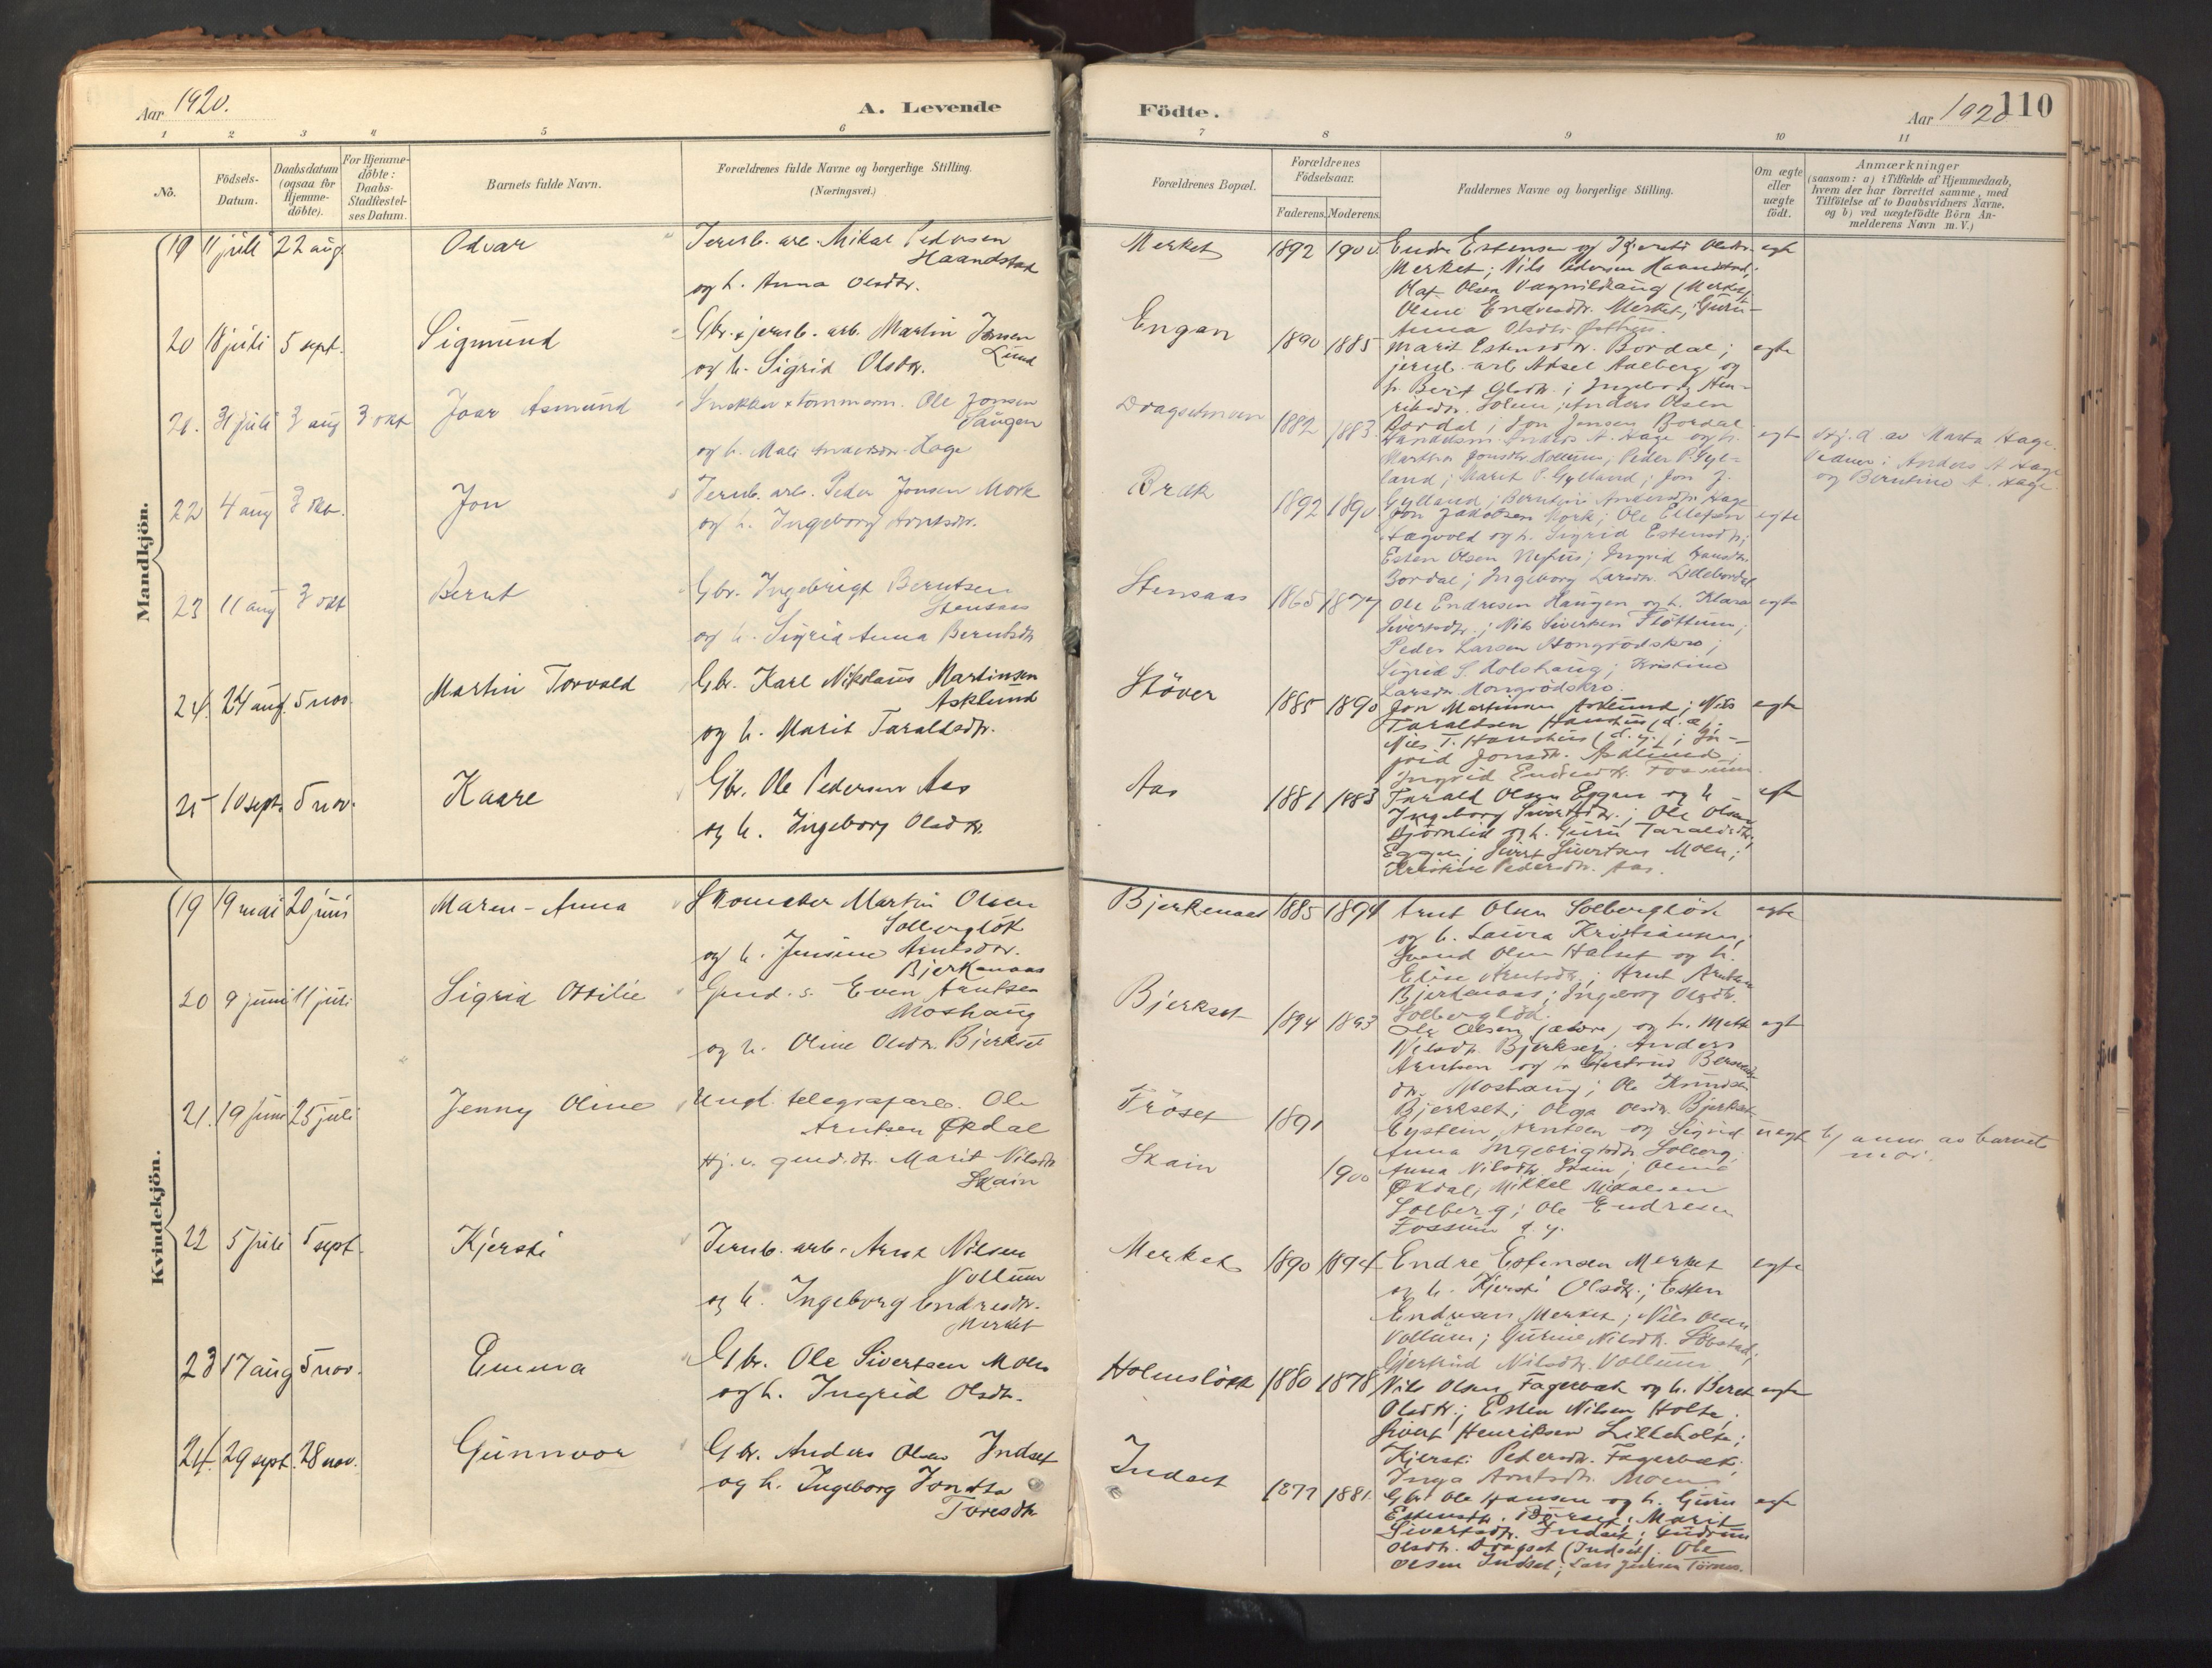 Aar 1920.
A. Levende
1 2 3 4 5 6
No.
Födsels-
Datum.
Daabsdatum
(ogsaa för
Hjemme-
döbte).
For Hjemme-
döbte:
Daabs-
Stadfæstel-
ses Datum.
Barnets fulde Navn.
Forældrenes fulde Navne og borgerlige Stilling.
(Næringsvei.)
Mandkjön.
19 11 juli 22 aug. Odvar Jernb. arb. Mikal Pedersen
Haandstad
og h. Anna Olsdtr.
20 18 juli 5 sept. Sigmund Gbr. & jernb. arb. Martin Jonsen
Lund
og h. Sigrid Olsdtr.
21. 31 juli 3 aug 3 okt Joar Asmund Snekker & tømmerm. Ole Jonsen
Haugen
og h. Mali Andersdtr. Hage
22 4 aug 3 okt. Jon Jernb. arb. Peder Jonsen Mork
og h. Ingeborg Arntsdtr.
23 11 aug 3 okt Bernt Gbr. Ingebrigt Berntsen
Stensaas
og h. Sigrid Anna Berntsdtr
24. 24 aug. 5 nov. Martin Torvald Gbr. Karl Nikolaus Martinsen
Asklund
og h. Marit Taraldsdtr.
25 10 sept. 5 nov. Kaare Gbr. Ole Pedersen Aas
og h. Ingeborg Olsdtr.
Kvindekjön.
19 19 mai 20 juni Maren-Anna Skomaker Martin Olsen
Solbergløk
og h. Jensine Arntsdtr.
Bjerkenaas
20 9 juni 11 juli Sigrid Ottilie Gmd. s. Even Arntsen
Moshaug
og h. Oline Olsdtr. Bjerkset
21. 19 juni 25 juli Jenny Oline Ungk. telegrafarb. Ole
Arntsen Økdal
Pj. gmd. dtr. Marit Nilsdtr
Skain
22 5 juli 5 sept. Kjersti Jernb. arb. Arnt Nilsen
Vollum
og h. Ingeborg Endresdtr.
Merket
23 17 aug 5 nov. Emma Gbr. Ole Sivertsen Moen
og h. Ingrid Olsdtr.
24. 29 sept. 28 nov. Gunnvor Gbr. Anders Olsen Indset
og h. Ingeborg
Toresdtr
Födte.
Aar 1920
110
7 8 9 10 11
Forældrenes Bopæl.
Forældrenes
Födselsaar.
Faderens. Moderens.
Faddernes Navne og borgerlige Stilling.
Om ægte
eller
uægte
födt.
Anmærkninger
(saasom: a) i Tilfælde af Hjemmedaab,
hvem der har forrettet samme, med
Tilföielse af to Daabsvidners Navne,
og b) ved uægtefödte Börn An-
melderens Navn m. V.)
Merket 1892 1900. Endre Estensen og Kjersti Olsdtr. egte
Merket; Nils Pedersen Haandstad;
Olaf Olsen Vagnildhaug (Merket)
Oline Endresdtr. Merket; Guru-
Anna Olsdtr.
Engan 1890 1885 Marit Estensdtr. Bordal; egte
jernb. arb. Aksel Aalberg og
h. Berit Olsdtr.; Ingeborg Hen-
riksdtr. Solem; Anders Olsen
Bordal; Jon Jensen Bordal
Dragsetmoen 1882 1883. Landhm. Anders A. Hage og h. egte
Marthe Jonsdtr. ; Peder P. Gyl-
land; Marit P. Gylland; Jon J.
Gylland; Berntine Andersdtr. Hage
hj. d. av Marta Hage.
Vidner: Anders A Hage
og Berntine A. Hage.
Bræk 1892 1890 Jon Jakobsen Mork; Ole Ellefsen egte
og h. Sigrid Estensdtr;
Esten Olsen ; Ingrid Hansdtr
Bordal; Ingeborg Larsdtr. Lillebordal
Stensaas 1865 1877 Ole Endresen Haugen og h. Klara egte
Sivertsdtr.; Nils Sivertsen Flöttum;
Peder Larsen
Sigrid S. Rolshaug; Kristine
Larsdtr.
Støver 1885 1890 Jon Martinsen Asklund; Nils egte
Taraldsen Hanshus (d. e.);
Nils T. Hanshus (d. y.); In-
grid Jonsdtr. Asklund;
Ingrid Endresdtr. Fossum.
Aas 1881 1883 Tarald Olsen Eggen og h egte
Ingeborg Sivertsdtr.; Ole Olsen
Bjørnlid og h. Guru Taraldsdtr,
Eggen; Sivert Sivertsen Moen;
Kristine Pedersdtr. Aas.
Bjerkenaas 1885 1894 Arnt Olsen Solbergløk egte
og h. Laura Kristiansen;
Svend Olsen Halset og h.
Elise Arntsdtr.; Arnt Arntsen
Bjerkenaas; Ingeborg Olsdtr.
Solbergløk.
Bjerkset 1894 1893 Ole Olsen (ældre) og h. Mett egte
Nilsdtr. Bjerkset; Anders
Arntsen og h Gjertrud
dtr. Moshaug; Ole Knudsen
Bjerkset; Olga Olsdtr. Bjerkset.
Frøset 1891 Eystein Arntsen og Sigrid uegte b) anm. av barnets
mor.
Anna Ingebrigtsdtr Solberg;
Skain 1900 Anna Nilsdtr. Skain; Oline
Økdal; Mikkel Mikalsen
Solberg; Ole Endresen
Fossum d. y.
Merket 1890 1894 Endre Estensen Merket egte
og h. Kjersti Olsdtr.; Esten
Endresen Merket; Nils Olsen
Vollum; Gurine Nilsdtr. Løbstad;
Gjertrud Nilsdtr. Vollum
Holmsløkk 1880 1878 Nils Olsen Fagerbæk og h. Beret egte
Olsdtr.; Esten Nilsen Holte;
Sivert Henriksen Lilleholte;
Kjersti Pedersdtr. Fagerbæk;
Inga Arntsdtr. Moen
Indset 1877 1881. Gbr. Ole Hansen og h. Guru egte
Estensdtr. ; Marit
Sivertsdtr. Indset; Gudrun
Olsdtr. Dragset (Indset). Ole
Olsen Indset; Lars Jensen